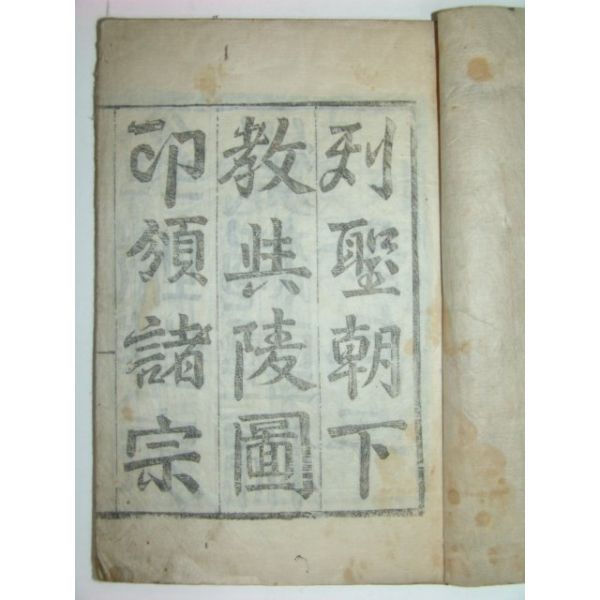 列聖朝下
敎與陵圖
印頒諸宗